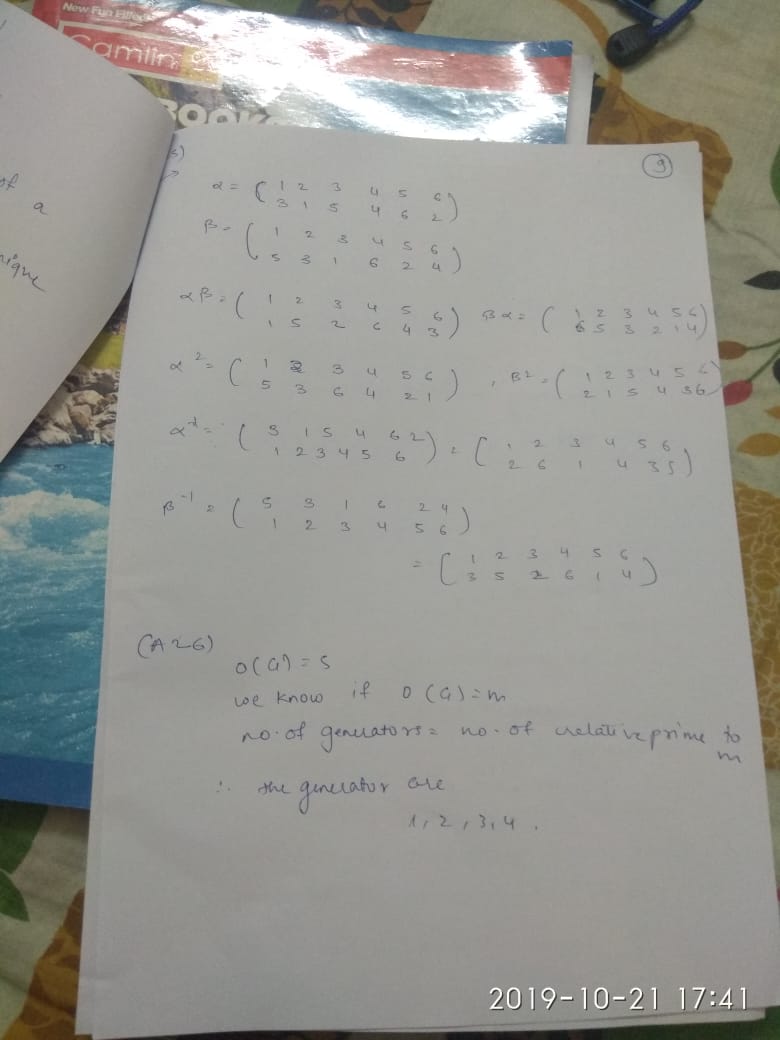 New Fun Effect
Camlin
BOOK
of
a
nique
5)
9
α = ( 1 2 3 4 5 6
3 1 5 4 6 2 )
β = ( 1 2 3 4 5 6
5 3 1 6 2 4 )
αβ = ( 1 2 3 4 5 6
1 5 2 6 4 3 ) βα = ( 1 2 3 4 5 6
6 5 3 2 1 4 )
α² = ( 1 2 3 4 5 6
5 3 6 4 2 1 ) , β² = ( 1 2 3 4 5 6
2 1 5 4 3 6 )
α⁻¹ = ( 3 1 5 4 6 2
1 2 3 4 5 6 ) = ( 1 2 3 4 5 6
2 6 1 4 3 5 )
β⁻¹ = ( 5 3 1 6 2 4
1 2 3 4 5 6 )
= ( 1 2 3 4 5 6
3 5 2 6 1 4 )
(A26)
O(G) = 5
we know if O(G) = m
no. of generators = no. of relative prime to
m
∴ the generator are
1, 2, 3, 4 .
2019-10-21 17:41